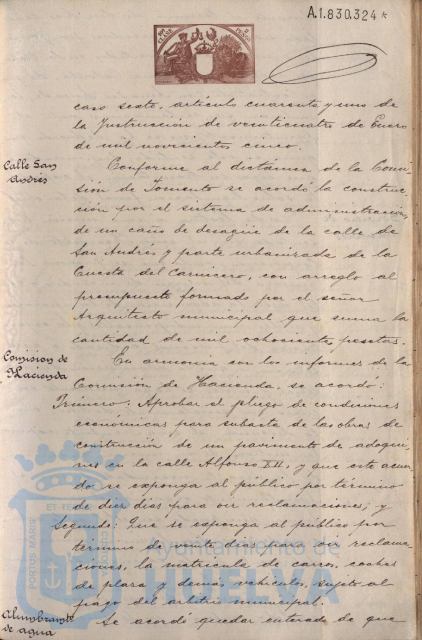 A.1.830.324*
caso sesto, artículo cuarenta y uno de
la Instrucción de veinticuatro de Enero
de mil novecientos cinco.
Calle San
Andrés
Conforme al dictámen de la Comi
sión de Fomento se acordó la construc
ción por el sistema de administración,
de un caño de desagüe de la calle de
San Andrés y parte urbanizada de la
Cuesta del Carnicero, con arreglo al
presupuesto formado por el señor
Arquitecto municipal que suma la
cantidad de mil ochocientas pesetas.
Comision de
Hacienda
En armonia con los informes de la
Comisión de Hacienda, se acordó:
Primero: Aprobar el pliego de condiciones
económicas para subasta de las obras de
construcción de un pavimento de adoqui
nes en la calle Alfonso XII, y que este acuer
do se exponga al público por término
de diez días para oir reclamaciones; y
Segundo: Que se exponga al público por
término de veinte días para oir reclama
ciones, la matrícula de carros, coches
de plaza y demás vehículos, sujeto al
pago del arbitrio municipal.
Alumbramto
de agua
Se acordó quedar enterado de que
PORTUS MARIS
ET TERRÆ
Ayuntamiento de
HUELVA